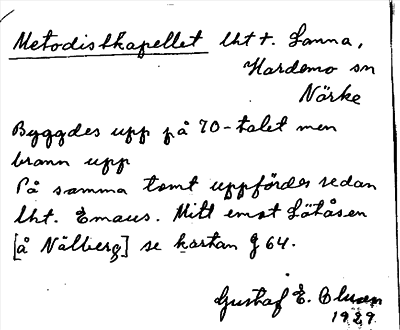 Metodistkapellet lht t. Lanna,
Hardemo sn
Närke
Byggdes upp på 70-talet men
brann upp
På samma tomt uppfördes sedan
lht. Emaus. Mitt emot Låtåsen
[å Nälberg] se kartan g 64.
Gustaf E.
1929